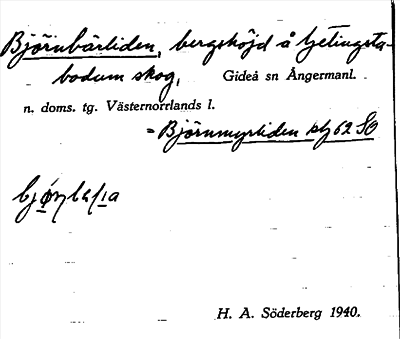 Björnbärliden, bergshöjd å Getingsta-
bodum skog, Gideå sn Ångermanl.
n. doms. tg. Västernorrlands l.
= Björnmyrliden blj 62 SO
H. A. Söderberg 1940.